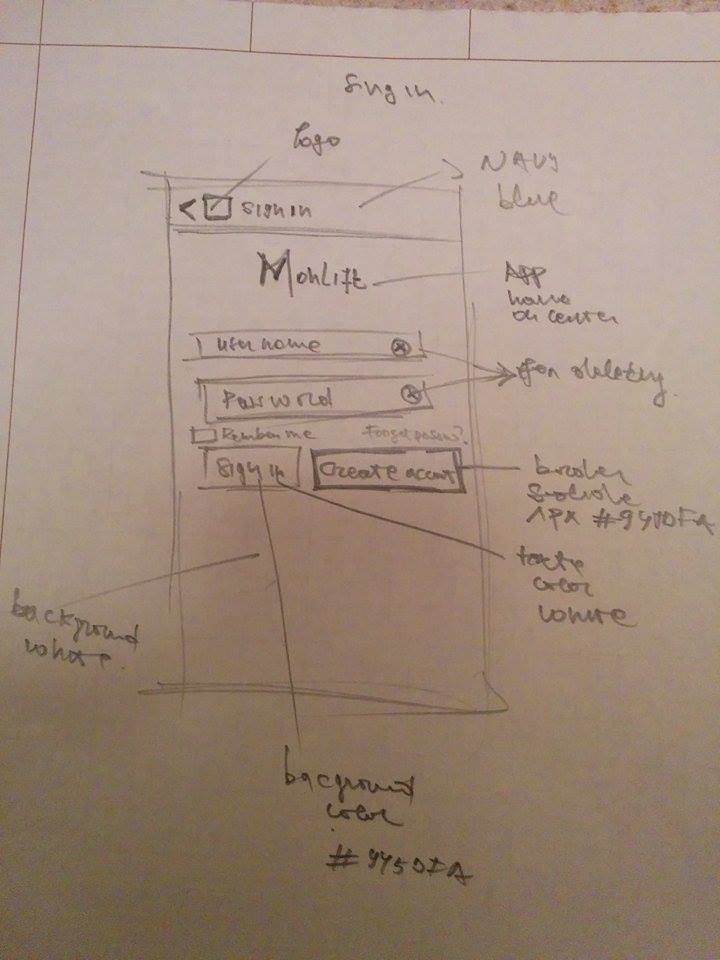 Sing in.
logo
NAVY
blue
< Sign in
MonLift
APP
name
on center
username
Password
for deleting
Remben me
Forgot passw?
Sign in
Create accont
border
1PX #94
texte
color
white
background
white.
bacground
color